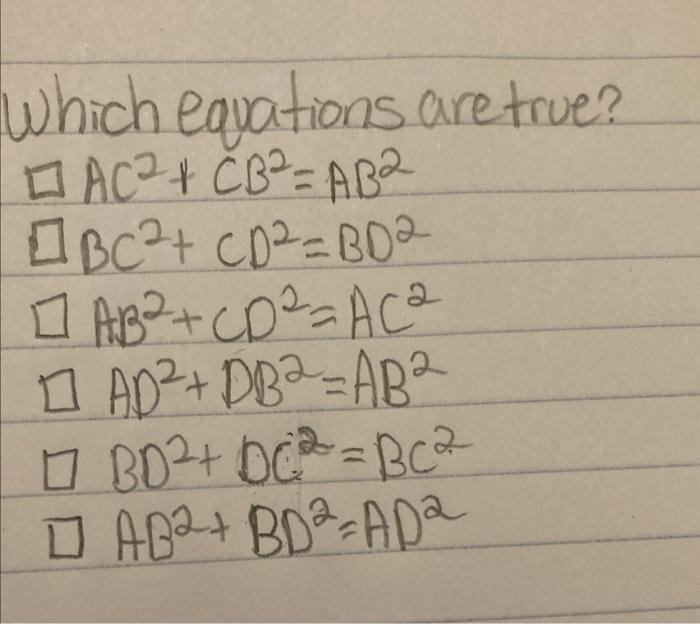 Which equations are true?
□ AC²+ CB²=AB²
□ BC²+ CD²=BD²
□ AB²+CD²=AC²
□ AD²+DB²=AB²
□ BD²+ DC²=BC²
□ AB²+ BD²=AD²